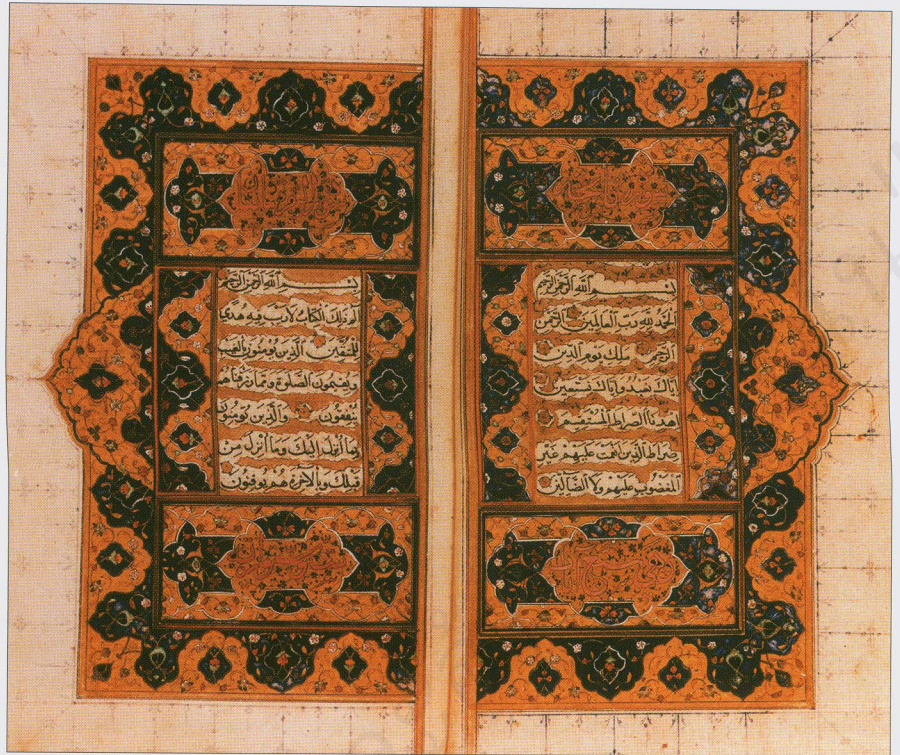 بِسْمِ اللَّهِ الرَّحْمَنِ الرَّحِيمِ
الْحَمْدُ لِلَّهِ رَبِّ الْعَالَمِينَ الرَّحْمَنِ
الرَّحِيمِ مَلِكِ يَوْمِ الدِّينِ
إِيَّاكَ نَعْبُدُ وَإِيَّاكَ نَسْتَعِينُ
اهْدِنَا الصِّرَاطَ الْمُسْتَقِيمَ
صِرَاطَ الَّذِينَ أَنْعَمْتَ عَلَيْهِمْ غَيْرِ
الْمَغْضُوبِ عَلَيْهِمْ وَلَا الضَّالِّينَ
بِسْمِ اللَّهِ الرَّحْمَنِ الرَّحِيمِ
الم ذَلِكَ الْكِتَابُ لَا رَيْبَ فِيهِ هُدًى
لِلْمُتَّقِينَ الَّذِينَ يُؤْمِنُونَ بِالْغَيْبِ
وَيُقِيمُونَ الصَّلَوةَ وَمِمَّا رَزَقْنَاهُمْ
يُنْفِقُونَ وَالَّذِينَ يُؤْمِنُونَ
بِمَا أُنْزِلَ إِلَيْكَ وَمَا أُنْزِلَ مِنْ
قَبْلِكَ وَبِالْآخِرَةِ هُمْ يُوقِنُونَ